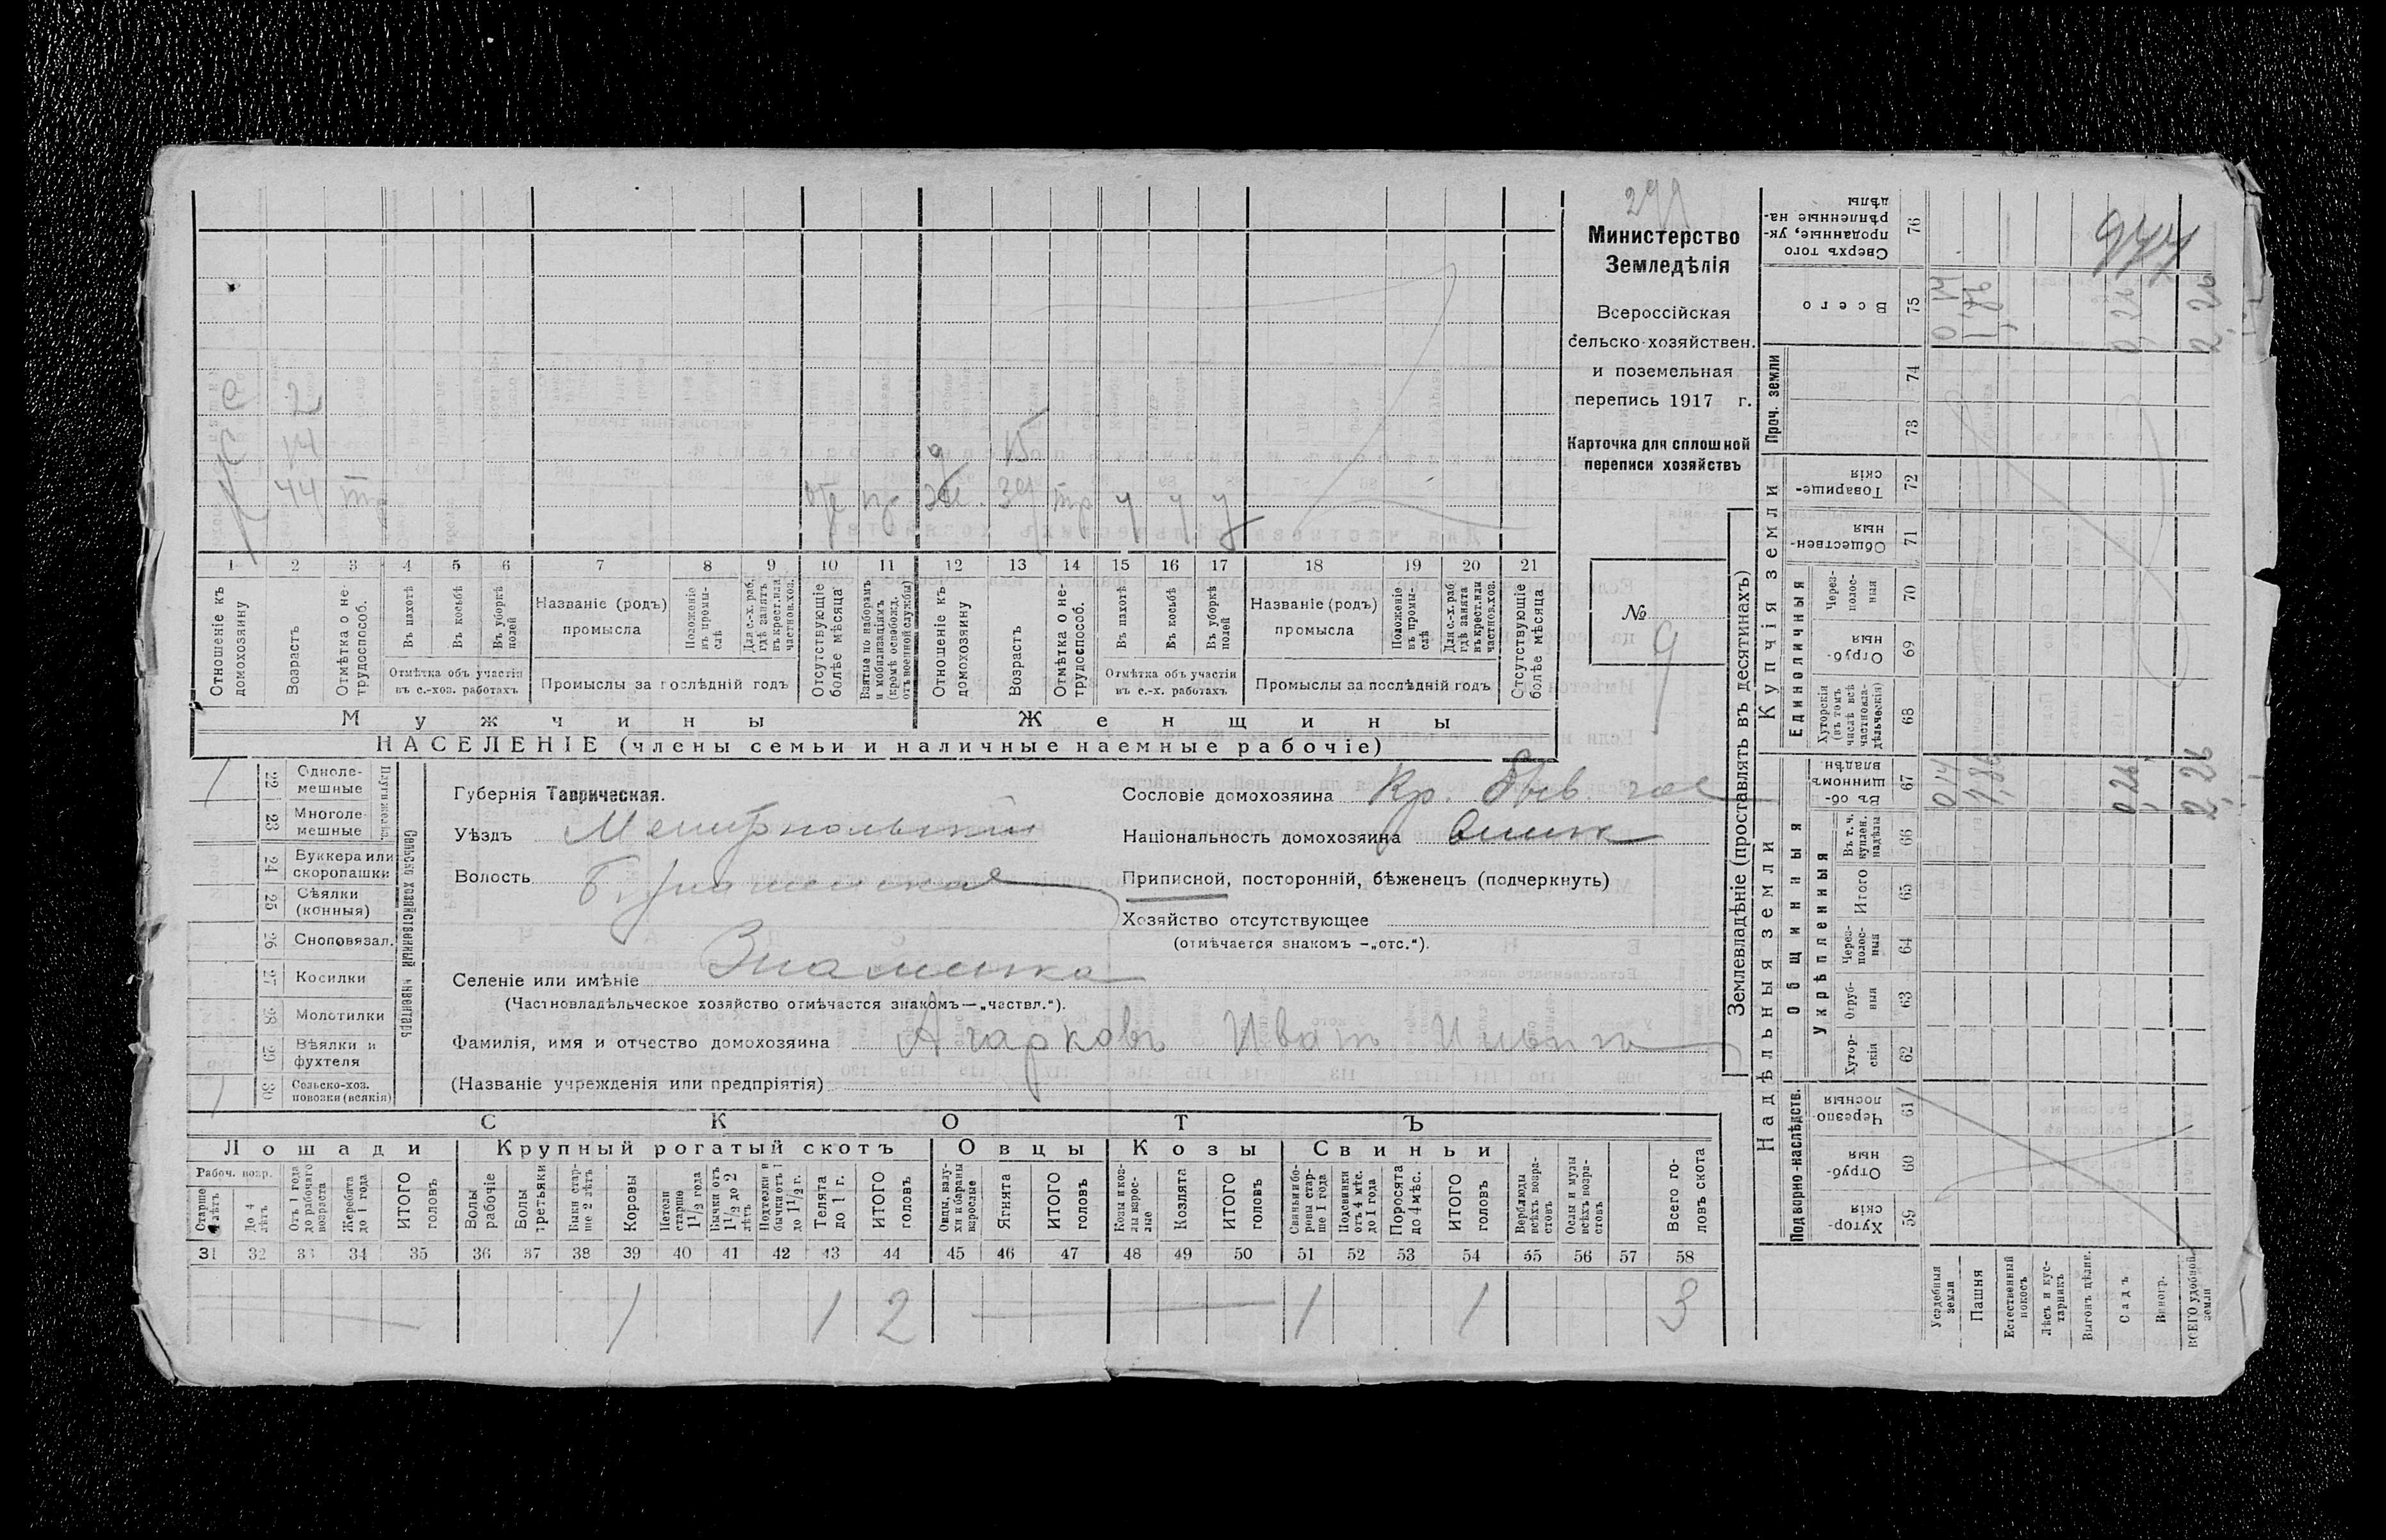 299
Министерство
Земледѣлія
Всероссійская
сельско-хозяйствен.
и поземельная
перепись 1917 г.
Карточка для сплошной
переписи хозяйствъ
№ 9
с 2
с 14
х 44 тр
д 15
же. 39 тр у у у
1 2 3 4 5 6 7 8 9 10 11 12 13 14 15 16 17 18 19 20 21
Отношеніе къ домохозяину
Возрастъ
Отмѣтка о нетрудоспособ.
Въ пахотѣ
Въ косьбѣ
Въ уборкѣ полей
Отмѣтка объ участіи
въ с.-хоз. работахъ
Названіе (родъ)
промысла
Положеніе въ промыслѣ
Для с.-х. раб. гдѣ занятъ въ крест. или частнов. хоз.
Промыслы за послѣдній годъ
Отсутствующіе болѣе мѣсяца
Взятые по наборамъ и мобилизаціямъ (кромѣ освобожд. отъ военной службы)
Отношеніе къ домохозяину
Возрастъ
Отмѣтка о нетрудоспособ.
Въ пахотѣ
Въ косьбѣ
Въ уборкѣ полей
Отмѣтка объ участіи
въ с.-х. работахъ
Названіе (родъ)
промысла
Положеніе въ промыслѣ
Для с.-х. раб. гдѣ занята въ крест. или частнов. хоз.
Промыслы за послѣдній годъ
Отсутствующіе болѣе мѣсяца
Мужчины Женщины
НАСЕЛЕНІЕ (члены семьи и наличные наемные рабочіе)
Сельско хозяйственный инвентарь
22 Одноле-мешные 1
23 Многоле-мешные
24 Буккера или скоропашки
25 Сѣялки (конныя)
26 Сноповязал.
27 Косилки
28 Молотилки
29 Вѣялки и фухтеля
30 Сельско-хоз. повозки (всякія) 1
Губернія Таврическая.
Уѣздъ Мелитопольскій
Волость
Селеніе или имѣніе Знаменка
(Частновладѣльческое хозяйство отмѣчается знакомъ—„частвл.“).
Фамилія, имя и отчество домохозяина Агарковъ Иванъ Ильичъ
(Названіе учрежденія или предпріятія)
Сословіе домохозяина Кр. быв. гос
Національность домохозяина
Приписной, посторонній, бѣженецъ (подчеркнуть)
Хозяйство отсутствующее
(отмѣчается знакомъ —„отс.“).
СКОТЪ
Лошади Крупный рогатый скотъ Овцы Козы Свиньи
Рабоч. возр.
Старше 4 лѣтъ
До 4 лѣтъ
Отъ 1 года до рабочаго возраста
Жеребята до 1 года
ИТОГО головъ
Волы рабочіе
Волы третьяки
Быки старше 2 лѣтъ
Коровы
Нетели старше 1½ года
Бычки отъ 1½ до 2 лѣтъ
Подтелки и бычки отъ 1 до 1½ г.
Телята до 1 г.
ИТОГО головъ
Овцы, валухи и бараны взрослые
Ягнята
ИТОГО головъ
Козы и козлы взрослые
Козлята
ИТОГО головъ
Свиньи и боровы старше 1 года
Подсвинки отъ 4 мѣс. до 1 года
Поросята до 4 мѣс.
ИТОГО головъ
Верблюды всѣхъ возрастовъ
Ослы и мулы всѣхъ возрастовъ
Всего головъ скота
31 32 33 34 35 36 37 38 39 40 41 42 43 44 45 46 47 48 49 50 51 52 53 54 55 56 57 58
— 1 1 2 — 1 1 3
Землевладѣніе (проставлять въ десятинахъ)
Надѣльныя земли Купчія земли Проч. земли
Подворно-наслѣдств. Общинныя Единоличныя
Укрѣпленныя
Хуторскія 59
Отрубныя 60
Черезполосныя 61
Хуторскія 62
Отрубныя 63
Черезполосныя 64
Итого 65
Въ т. ч. куплен. надѣлы 66
Въ общинномъ владѣн. 67
Хуторскія (въ томъ числѣ всѣ частновладѣльческія) 68
Отрубныя 69
Черезполосныя 70
Общественныя 71
Товарищескія 72
73
74
Всего 75
Сверхъ того проданные, укрѣпленные надѣлы 76
Усадебныя земли 0,14 0,14
Пашня 1,86 1,86
Естественный покосъ
Лѣсъ и кустарникъ
Выгонъ цѣлин.
Садъ 0,26 0,26
Виногр.
ВСЕГО удобной земли 2,26 2,26
977